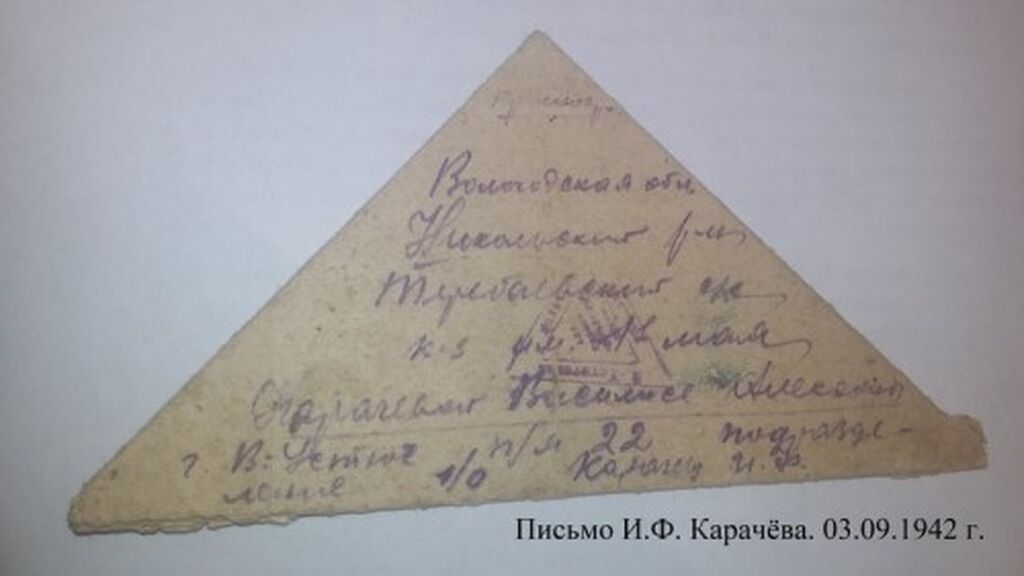 Вологодская обл.
Никольский р-н
Теребаевский с/с
к-з им. 1 мая
Карачевой Василисе
г. В-Устюг п/я 22 подразде-
ление 1/0 Карачев И. Ф.
Письмо И.Ф. Карачёва. 03.09.1942 г.